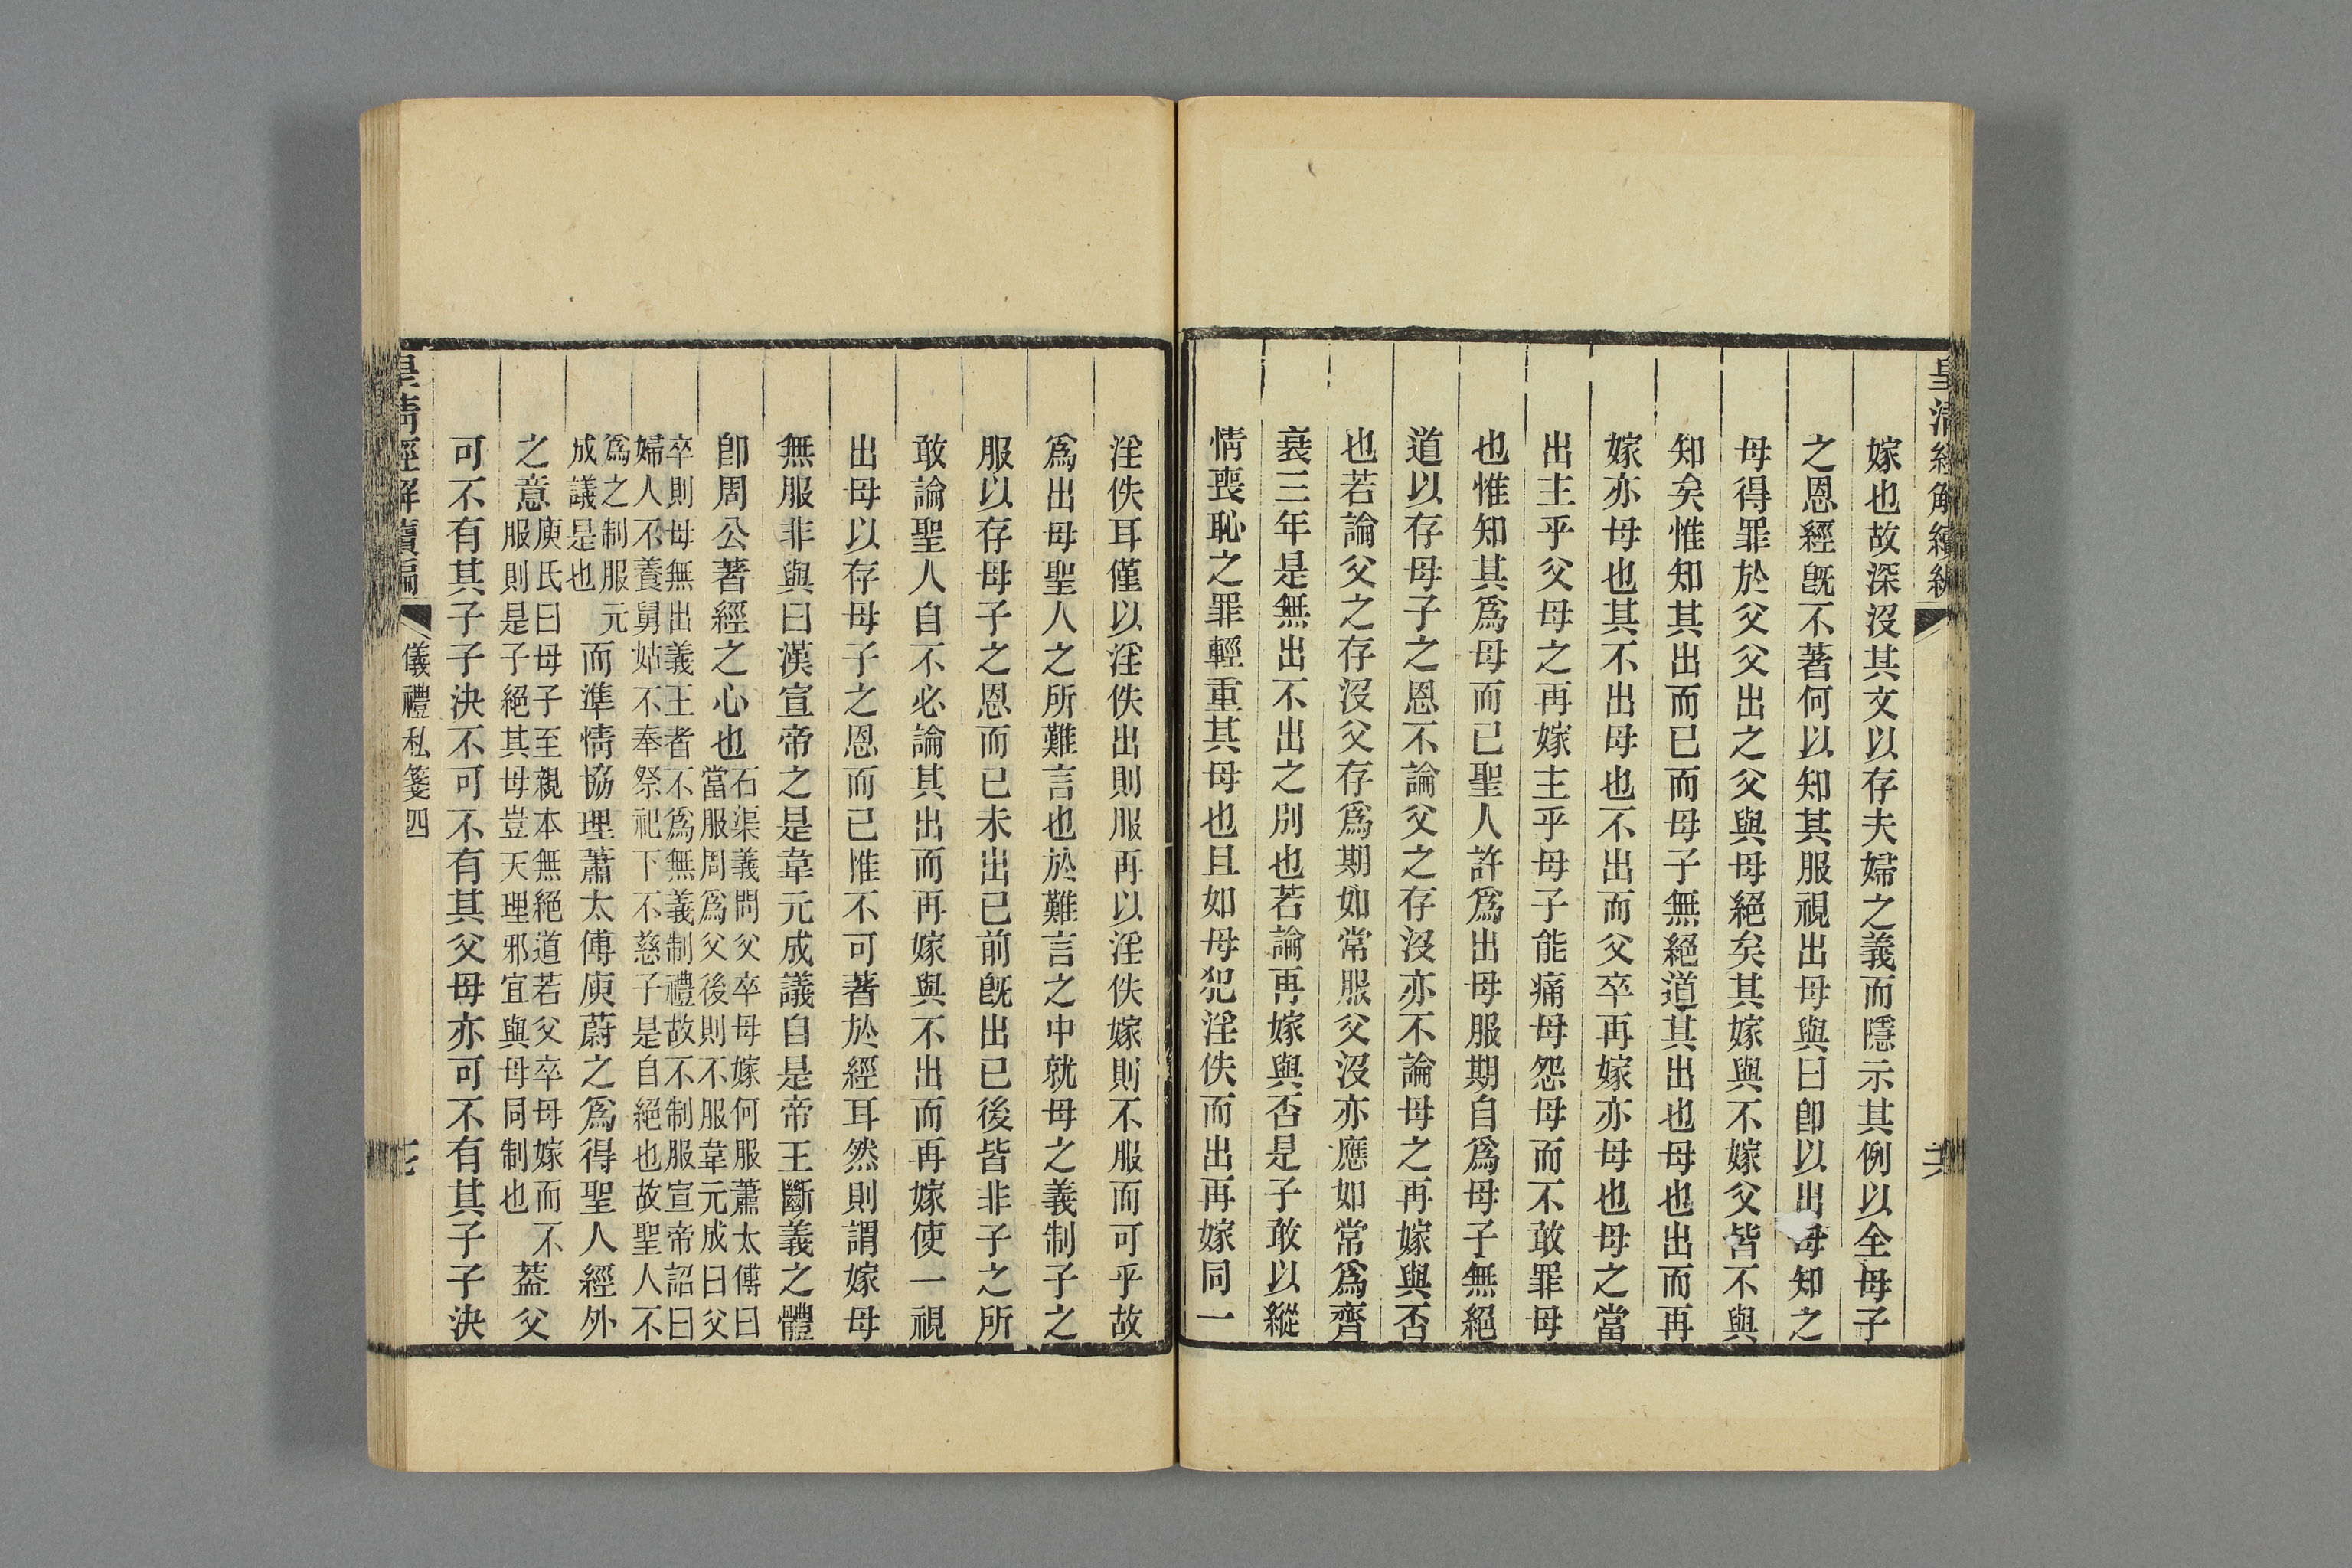 嫁也故深沒其文以存夫婦之義而隱示其例以全母子
之恩經旣不著何以知其服視出母與曰卽以出母知之
母得罪於父父出之父與母絕矣其嫁與不嫁父皆不與
知矣惟知其出而已而母子無絕道其出也母也出而再
嫁亦母也其不出母也不出而父卒再嫁亦母也母之當
出主乎父母之再嫁主乎母子能痛母怨母而不敢罪母
也惟知其爲母而已聖人許爲出母服期自爲母子無絕
道以存母子之恩不論父之存沒亦不論母之再嫁與否
也若論父之存沒父存爲期如常服父沒亦應如常爲齊
衰三年是無出不出之別也若論再嫁與否是子敢以縱
情喪恥之罪輕重其母也且如母犯淫佚而出再嫁同一
淫佚耳僅以淫佚出則服再以淫佚嫁則不服而可乎故
爲出母聖人之所難言也於難言之中就母之義制子之
服以存母子之恩而已未出已前旣出已後皆非子之所
敢論聖人自不必論其出而再嫁與不出而再嫁使一視
出母以存母子之恩而已惟不可著於經耳然則謂嫁母
無服非與曰漢宣帝之是韋元成議自是帝王斷義之體
卽周公著經之心也石渠義問父卒母嫁何服蕭太傅曰
當服周爲父後則不服韋元成曰父
卒則母無出義王者不爲無義制禮故不制服宣帝詔曰
婦人不養舅姑不奉祭祀下不慈子是自絕也故聖人不
爲之制服元
成議是也
而準情協理蕭太傅庾蔚之爲得聖人經外
之意庾氏曰母子至親本無絕道若父卒母嫁而不
服則是子絕其母豈天理邪宜與母同制也
葢父
可不有其子子決不可不有其父母亦可不有其子子決
儀禮私箋四